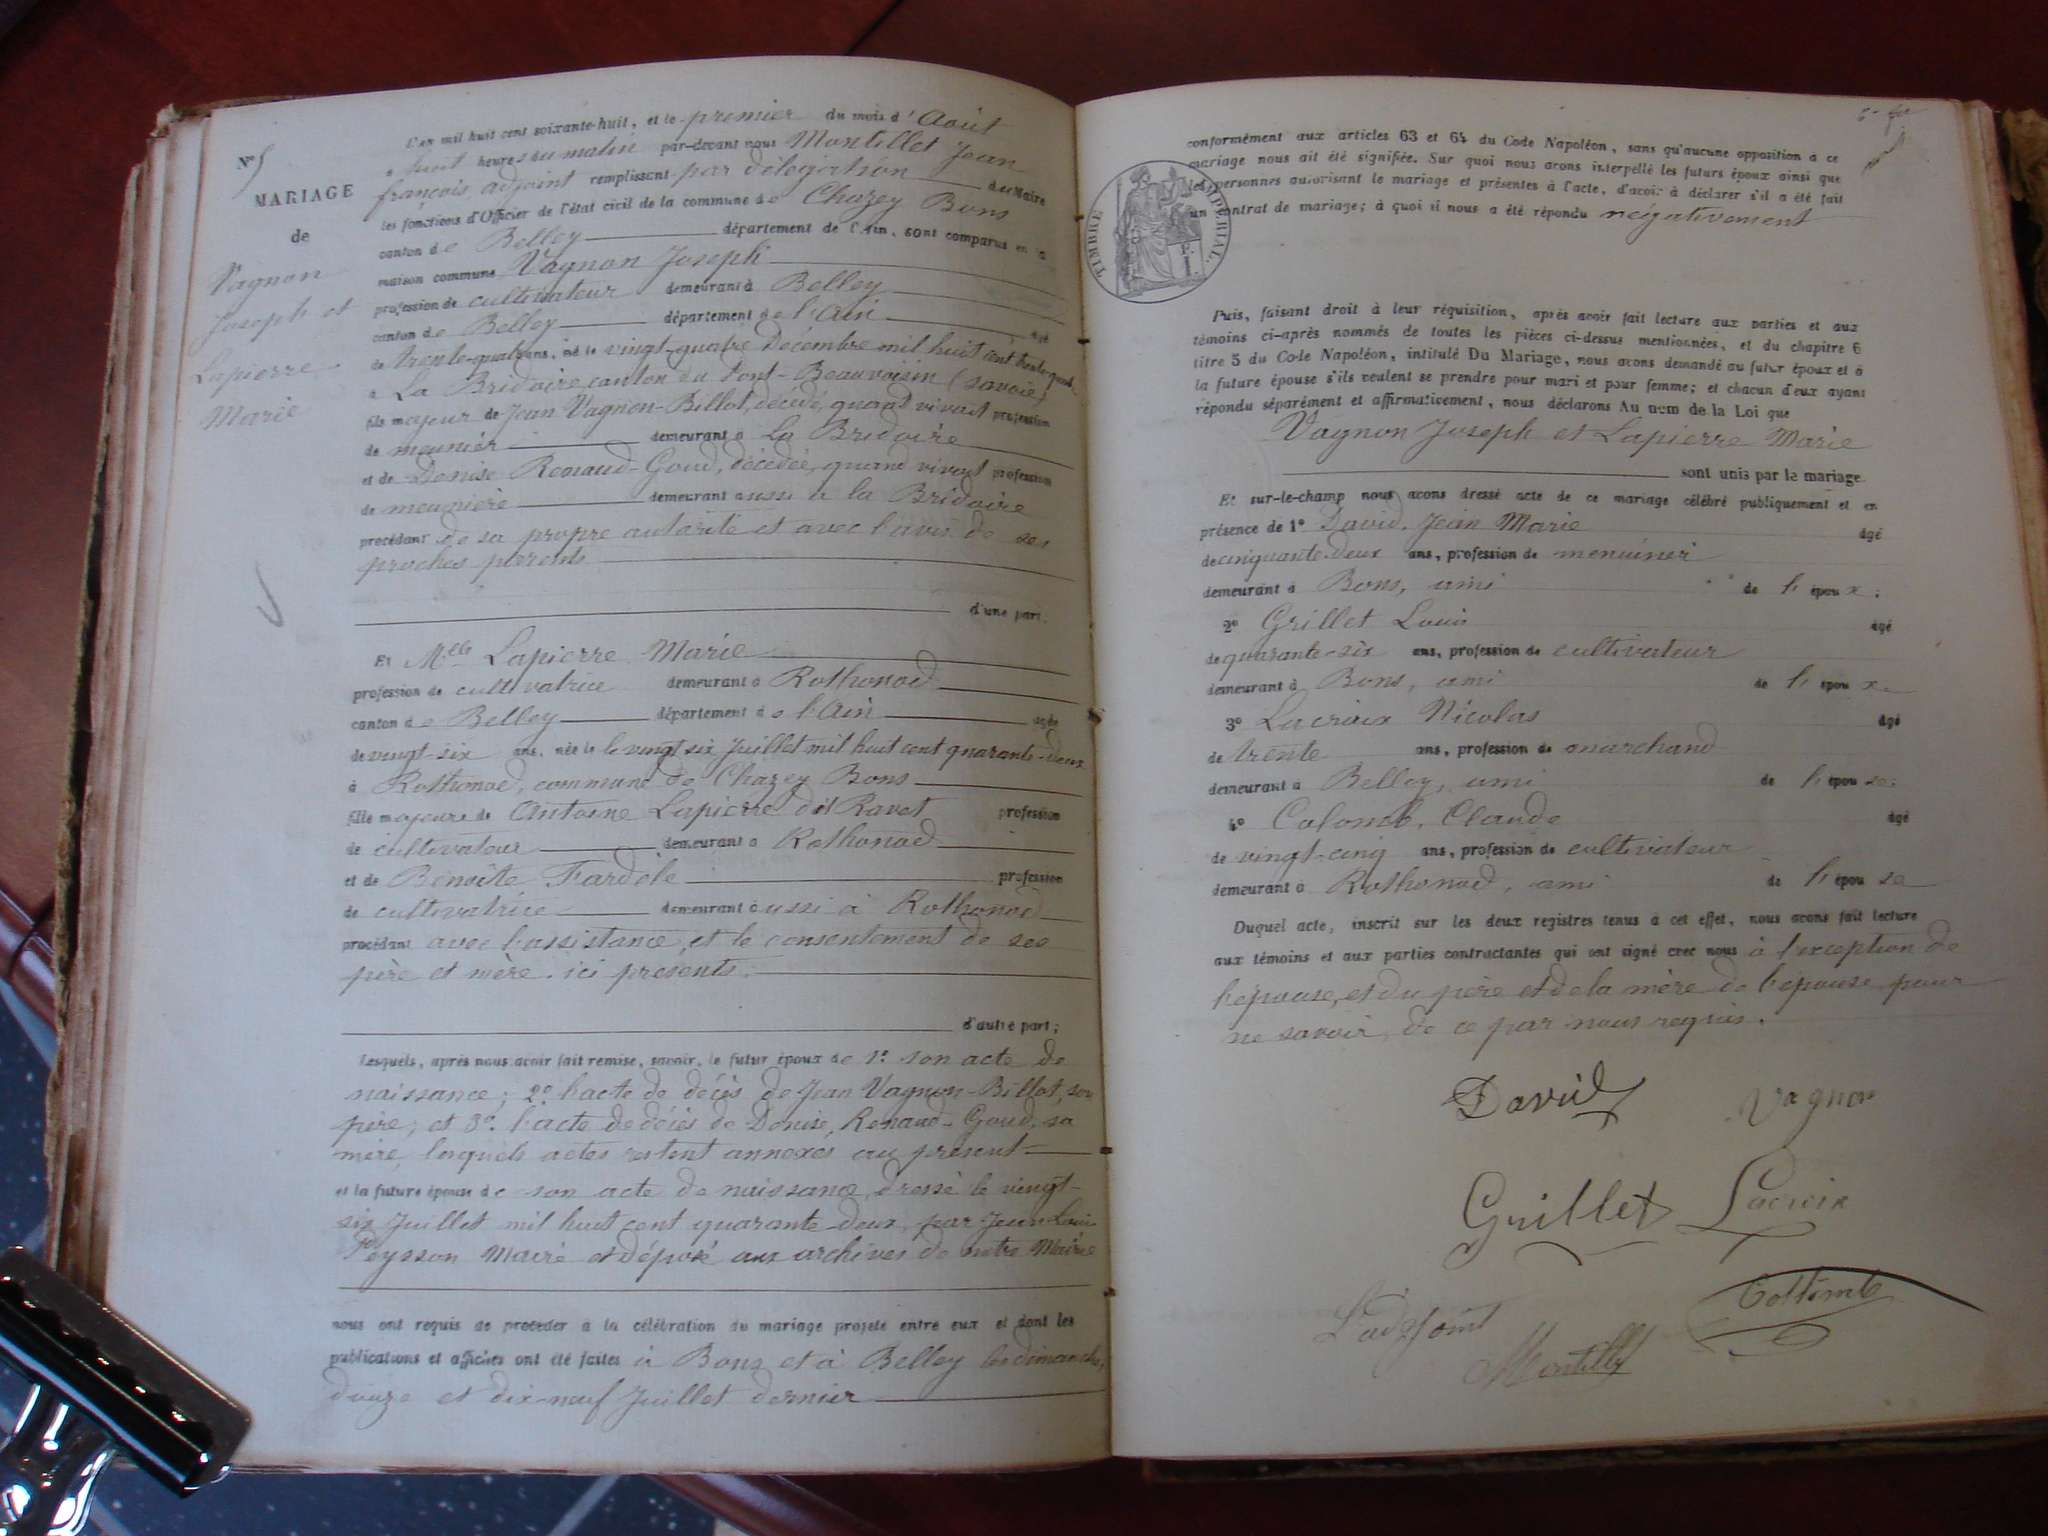 N° 5
MARIAGE
de
Vagnon
Joseph et
Lapierre
Marie
L'an mil huit cent soixante-huit, et le premier du mois d'Août
à huit heures du matin par-devant nous Montillet Jean
françois, adjoint remplissant par délégation du Maire
les fonctions d'Officier de l'état civil de la commune de Chazey Bons
canton de Belley département de l'Ain, sont comparus en la
maison commune Vagnon Joseph
profession de cultivateur demeurant à Belley
canton de Belley département de l'Ain âgé
de trente-quatre ans, né le vingt-quatre Décembre mil huit cent trente-quatre
à La Bridoire, canton du Pont-Beauvoisin (Savoie)
fils majeur de Jean Vagnon-Billot, décédé, quand vivait profession
de meunier demeurant à La Bridoire
et de Denise Renaud-Goud, décédée, quand vivait profession
de meunière demeurant aussi à la Bridoire
procédant de sa propre autorité et avec l'avis de ses
proches parents
d'une part;
Et Melle Lapierre Marie
profession de cultivatrice demeurant à Rothonod
canton de Belley département de l'Ain âgée
de vingt-six ans, née le le vingt six Juillet mil huit cent quarante-deux
à Rothonod, commune de Chazey Bons
fille majeure de Antoine Lapierre dit Ravet profession
de cultivateur demeurant à Rothonod
et de Benoîte Fardèle profession
de cultivatrice demeurant aussi à Rothonod
procédant avec l'assistance et le consentement de ses
père et mère ici présents.
d'autre part;
Lesquels, après nous avoir fait remise, savoir, le futur époux de 1° son acte de
naissance; 2° l'acte de décès de Jean Vagnon-Billot, son
père; et 3° l'acte de décès de Denise, Renaud-Goud, sa
mère, lesquels actes restent annexés au présent
et la future épouse de son acte de naissance, dressé le vingt-
six Juillet mil huit cent quarante-deux, par Jean Louis
Peysson Maire et déposé aux archives de notre Mairie
nous ont requis de procéder à la célébration du mariage projeté entre eux et dont les
publications et affiches ont été faites à Bons et à Belley les dimanches
douze et dix-neuf Juillet dernier
conformément aux articles 63 et 64 du Code Napoléon, sans qu'aucune opposition à ce
mariage nous ait été signifiée. Sur quoi nous avons interpellé les futurs époux ainsi que
les personnes autorisant le mariage et présentes à l'acte, d'avoir à déclarer s'il a été fait
un contrat de mariage; à quoi il nous a été répondu négativement
TIMBRE IMPÉRIAL.
Puis, faisant droit à leur réquisition, après avoir fait lecture aux parties et aux
témoins ci-après nommés de toutes les pièces ci-dessus mentionnées, et du chapitre 6
titre 5 du Code Napoléon, intitulé Du Mariage, nous avons demandé au futur époux et à
la future épouse s'ils veulent se prendre pour mari et pour femme; et chacun d'eux ayant
répondu séparément et affirmativement, nous déclarons Au nom de la Loi que
Vagnon Joseph et Lapierre Marie
sont unis par le mariage
Et sur-le-champ nous avons dressé acte de ce mariage célébré publiquement et en
présence de 1° David, Jean Marie âgé
de cinquante-deux ans, profession de menuisier
demeurant à Bons, ami de l'époux;
2° Grillet Louis âgé
de quarante-six ans, profession de cultivateur
demeurant à Bons, ami de l'époux
3° Lacroix Nicolas âgé
de trente ans, profession de marchand
demeurant à Belley, ami de l'épouse;
4° Colomb, Claude âgé
de vingt-cinq ans, profession de cultivateur
demeurant à Rothonod, ami de l'épouse
Duquel acte, inscrit sur les deux registres tenus à cet effet, nous avons fait lecture
aux témoins et aux parties contractantes qui ont signé avec nous à l'exception de
l'épouse, et du père et de la mère de l'épouse pour
ne savoir, de ce par nous requis.
David Vagnon
Grillet Lacroix
L'adjoint Collomb
Montillet